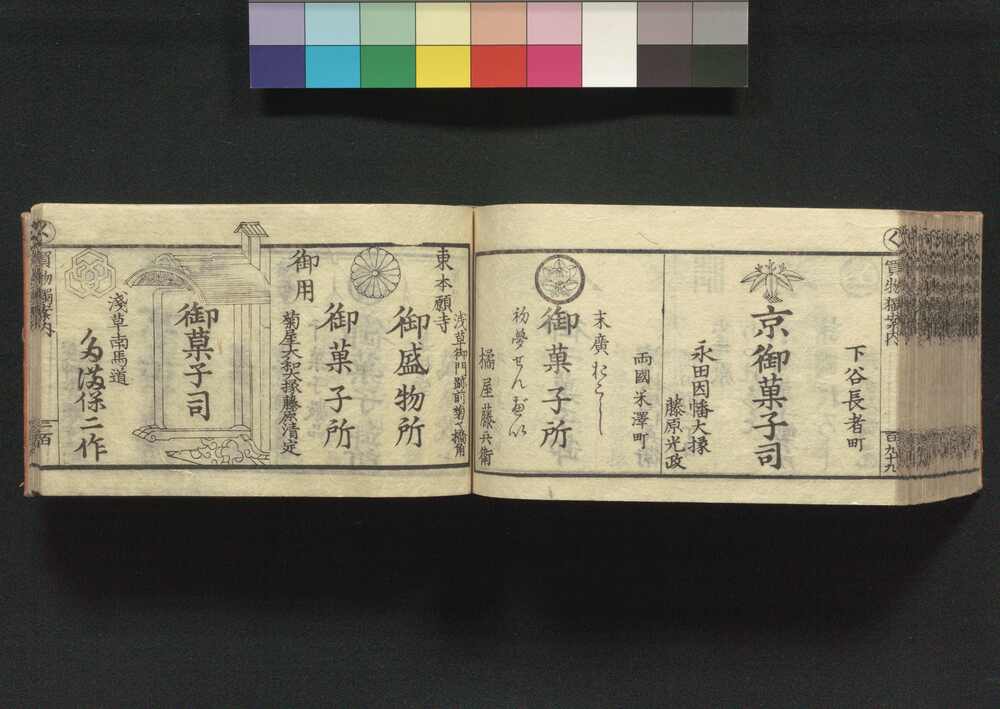 く
買物獨案内
百九十九
下谷長者町
京御菓子司
永田因幡大掾
藤原光政
両國米澤町
末廣おこし
御菓子所
初夢せんべい
橘屋藤兵衛
東本願寺
浅草御門跡前菊や橋角
御盛物所
御用
御菓子所
菊屋大和大掾藤原清定
御菓子司
淺草南馬道
く
買物獨案内
二百